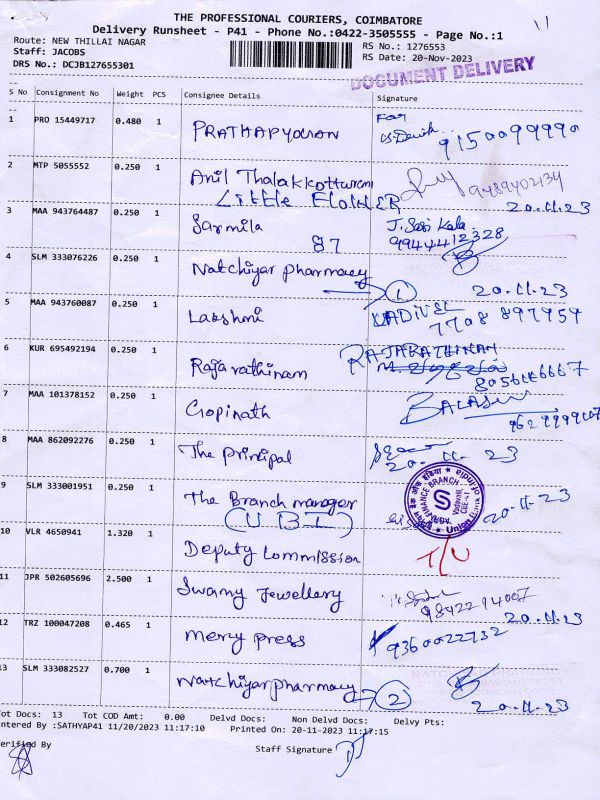 THE PROFESSIONAL COURIERS, COIMBATORE
Delivery Runsheet - P41 - Phone No.:0422-3505555 - Page No.:1
Route: NEW THILLAI NAGAR
RS No.: 1276553
Staff: JACOBS
RS Date: 20-Nov-2023
DRS No.: DCJB127655301
DOCUMENT DELIVERY
S No Consignment No Weight PCS Consignee Details Signature
1 PRO 15449717 0.480 1 For
9150099990
2 MTP 5055552 0.250 1 Anil Thalakkotturam 9489402134
Little Flower 20.11.23
3 MAA 943764487 0.250 1 Sarmila J. Sasi Kala
87 9944412328
4 SLM 333076226 0.250 1 Natchiyar pharmacy
1 20.11.23
5 MAA 943760087 0.250 1 Lakshmi VADIVEL
7708 897959
6 KUR 695492194 0.250 1 Rajarathinam RAJARATHINAM
7 MAA 101378152 0.250 1 Gopinath
8 MAA 862092276 0.250 1 The Principal
20-11-23
9 SLM 333001951 0.250 1 The Branch manager
(UBI) 20-11-23
10 VLR 4650941 1.320 1 Deputy Commission T/U
11 JPR 502605696 2.500 1 Swamy Jewellery 9842294007
20.11.23
12 TRZ 100047208 0.465 1 mercy press 9360022732
13 SLM 333082527 0.700 1 Natchiyar pharmacy
2 20.11.23
Tot Docs: 13 Tot COD Amt: 0.00 Delvd Docs: Non Delvd Docs: Delvy Pts:
Entered By :SATHYAP41 11/20/2023 11:17:10 Printed On: 20-11-2023 11:17:15
Verified By
Staff Signature